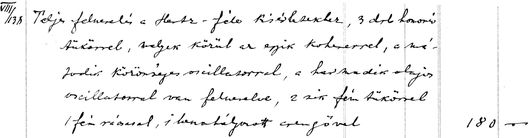 VIII/131. Teljes felszerelés a Hertz-féle kisérletekhez, 3 drb homorú
tükörrel, melyek közül az egyik kohererrel, a má-
sodik közönséges oscillatorral, a harmadik olajos
oscillatorral van felszerelve, 2 sík fém tükörrel
1 fém ráccsal, 1 csengővel 180 —